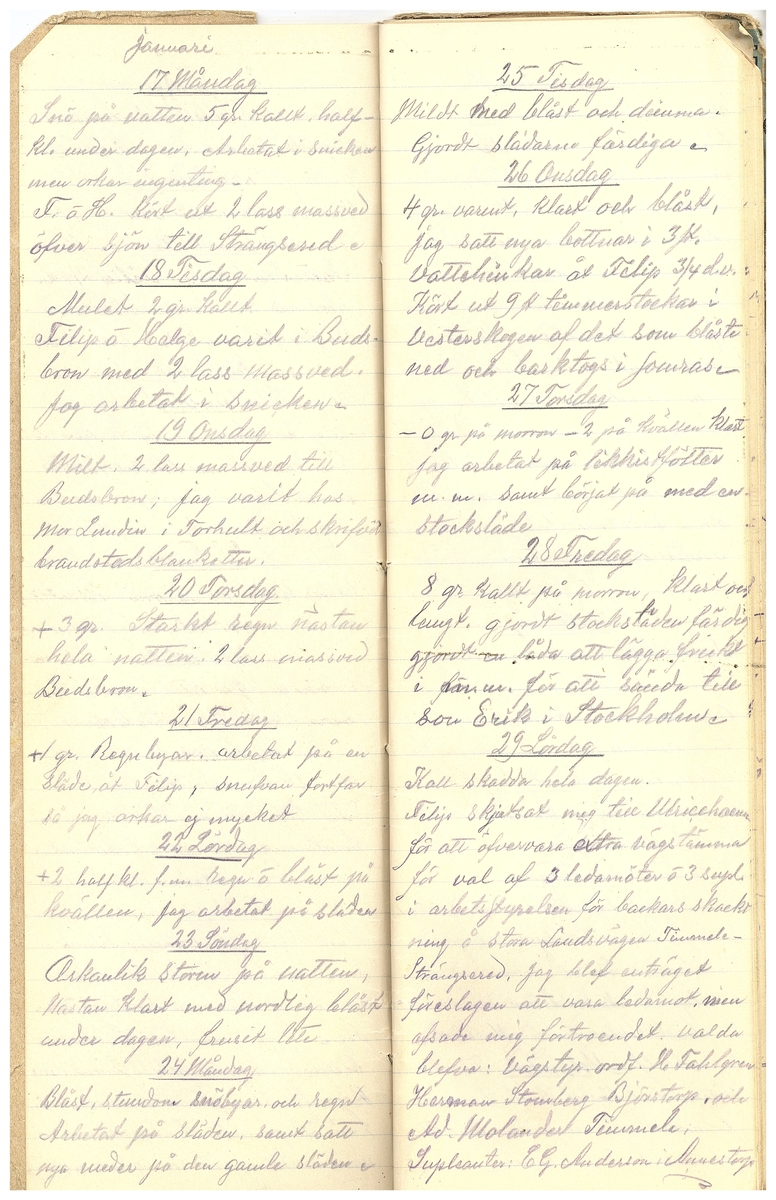 Januari
17 Måndag
Snö på natten 5 gr. kallt. half-
kl. under dagen. Arbetat i snicken
men orkar ingenting.
F. o H. kört ut 2 lass massved
öfver sjön till Strängsered.
18 Tisdag
Mulet 2 gr. kallt
Filip o Helge varit i Buds-
bron med 2 lass massved.
Jag arbetat i snicken.
19 Onsdag
Milt. 2 lass massved till
Budsbron; jag varit hos
Mor Lundin i Torhult och skrifvit
brandstodsblanketter.
20 Torsdag
+ 3 gr. Starkt regn nästan
hela natten. 2 lass massved
Budsbron.
21 Fredag
+1 gr. Regnbyar. arbetat på en
släde åt Filip, snufvan fortfar
så jag orkar ej mycket
22 Lördag
+2 halfkl. f.m. regn o blåst på
kvällen, jag arbetat på släden
23 Söndag
Orkanlik storm på natten,
nästan klart med nordlig blåst
under dagen, frusit lite
24 Måndag
Blåst, stundom snöbyar och regn
Arbetat på släden, samt satt
nya meder på den gamle släden
25 Tisdag
Mildt med blåst och dimma.
Gjordt slädarne färdiga
26 Onsdag
4 gr. varmt, klart och blåst,
jag satt nya bottnar i 3 st.
vattehinkar åt Filip 3/4 d.v.
Kört ut 9 st timmerstockar i
Vesterskogen af det som blåste
ned och barktogs i somras
27 Torsdag
- 0 gr på morron - 2 på kvällen klart
jag arbetat på likkistfötter
m. m. samt börjat på med en
stocksläde
28 Fredag
8 gr kallt på morron, klart och
lungt. gjordt stocksläden färdig
gjordt en låda att lägga frukt
i m.m. för att sända till
son Erik i Stockholm
29 Lördag
Kall skadda hela dagen.
Filip skjutsat mig till Ulricehamn
för att öfvervara extra vägstämma
för val af 3 ledamöter o 3 supl.
i arbetsstyrelsen för backars skackt
ning å stora Landsvägen Timmele-
Strängsered. Jag blef enträget
föreslagen att vara ledamot, men
afsade mig förtroendet. valda
blefva: Vägstyr. ordf. H Fahlgren
Herman Stomberg Björstorp, och
Ad. Molander Timmele.
Supleanter: E G. Anderson i Annestorp